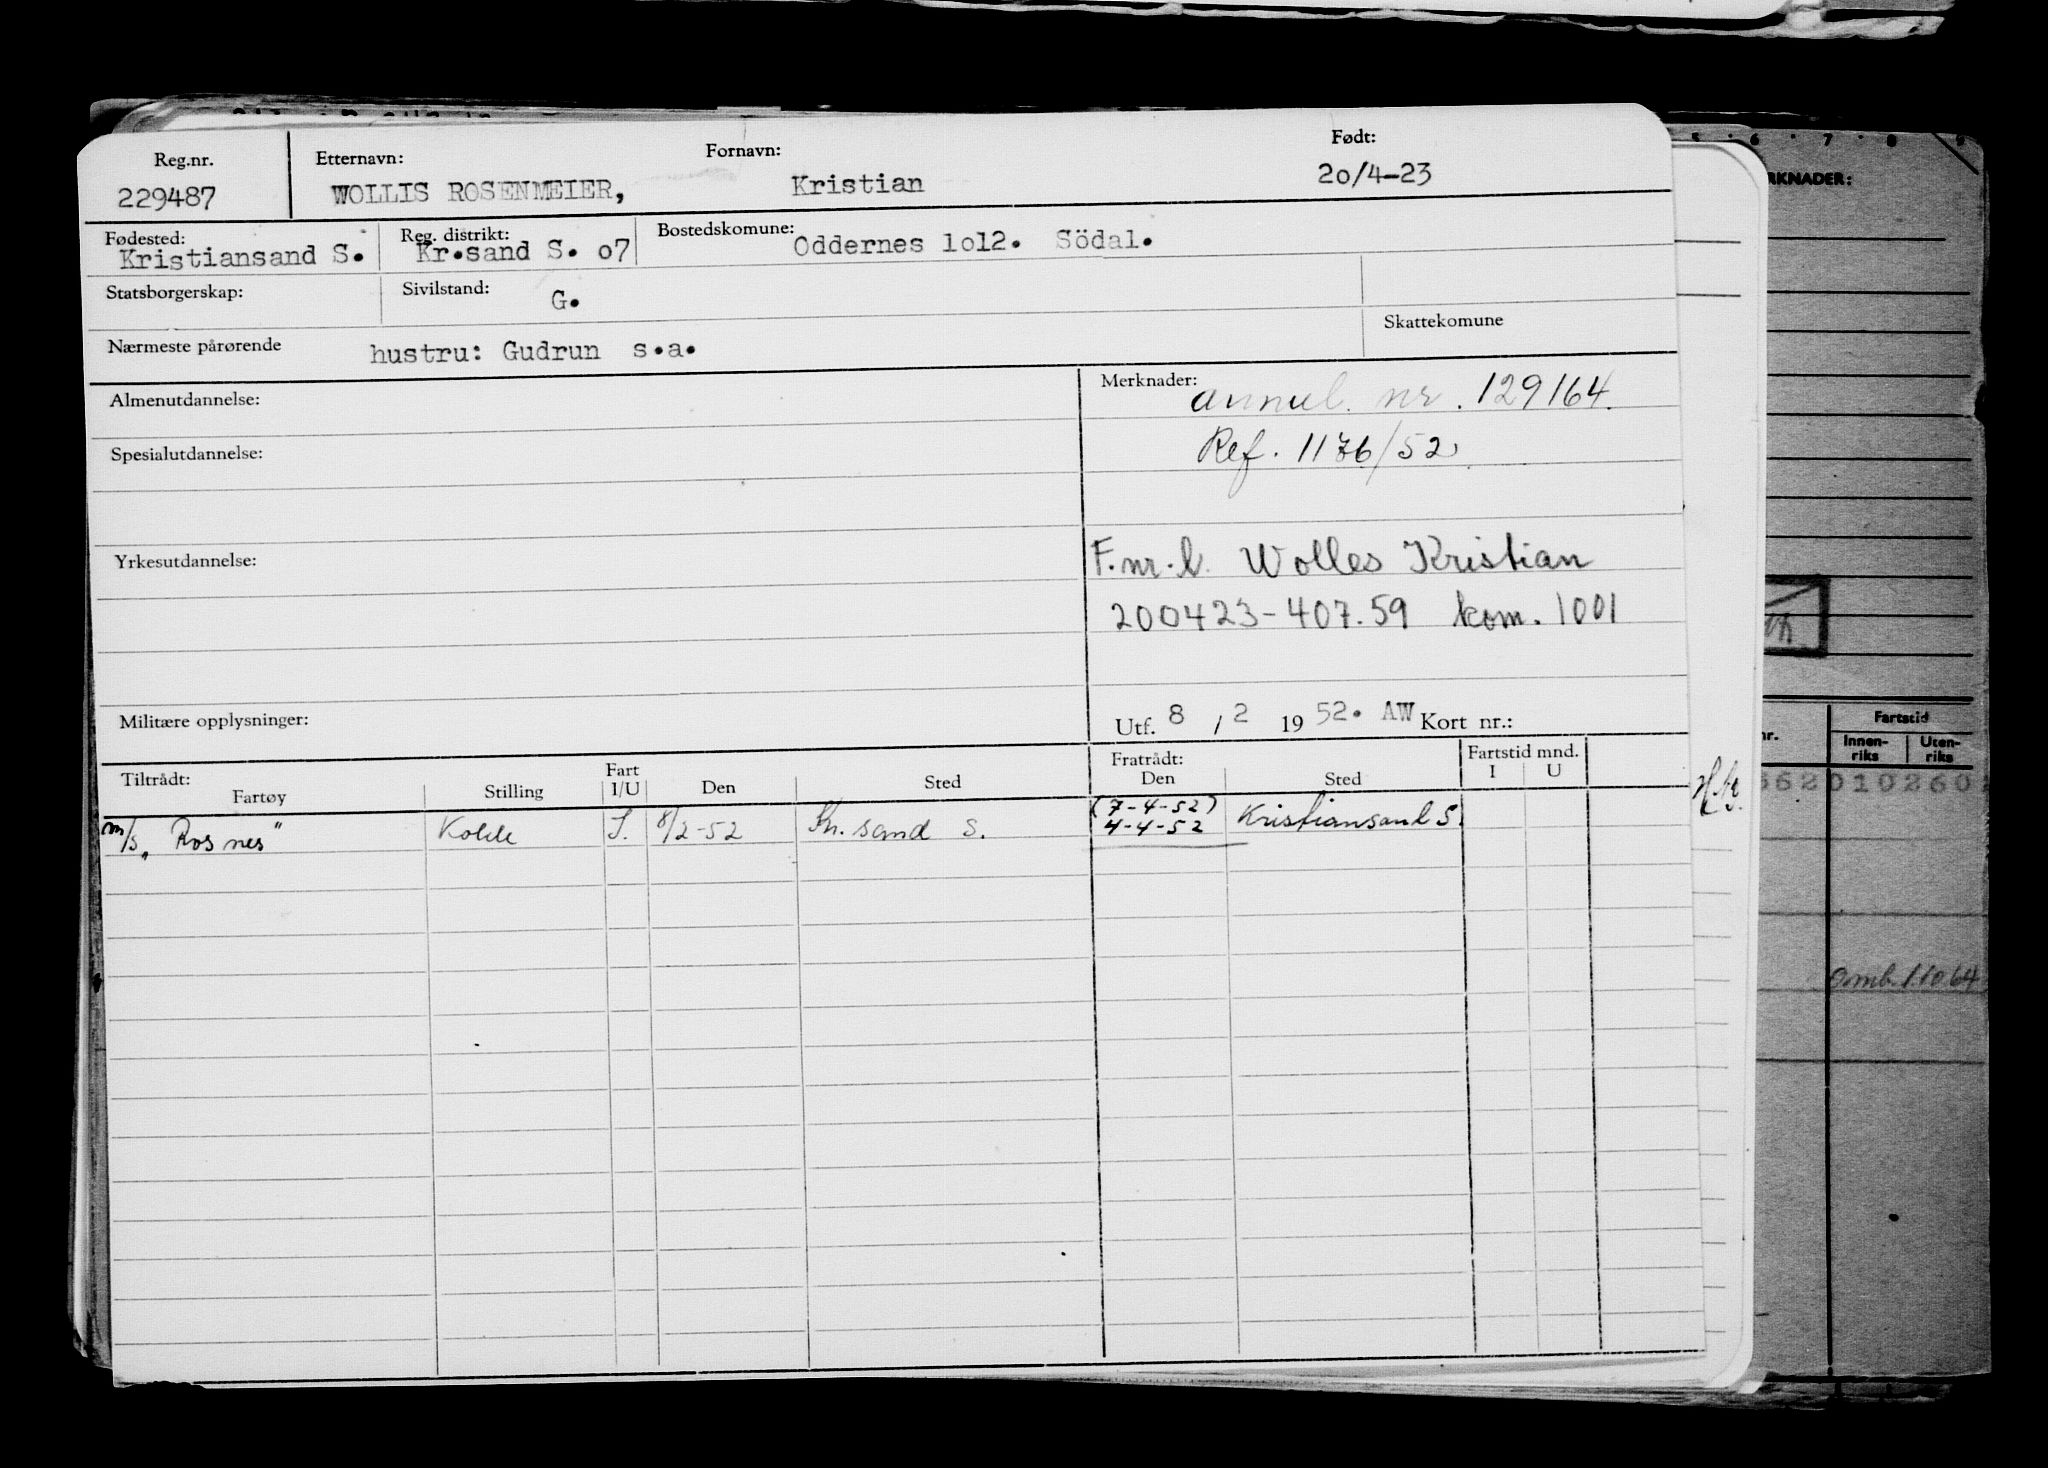 Reg.nr. Etternavn: Fornavn: Født:
229487 WOLLIS ROSENMEIER, Kristian 20/4-23
Fødested: Reg. distrikt: Bostedskomune:
Kristiansand S. Kr.sand S. o7 Oddernes 1o12. Södal.
Statsborgerskap: Sivilstand: G.
Skattekomune
Nærmeste pårørende hustru: Gudrun s.a.
Almenutdannelse: Merknader: annul. nr. 129164.
Spesialutdannelse: Ref. 1176/52
Yrkesutdannelse: F.nr.b. Wolles Kristian
200423-407.59 kom. 1001
Militære opplysninger: Utf. 8 / 2 19 52. AW Kort nr.:
Tiltrådt: Fart Fratrådt: Fartstid mnd.
Fartøy Stilling I/U Den Sted Den Sted I U
(7-4-52)
m/s „Rosnes" Kokk S. 8/2-52 Kr.sand S. 4-4-52 Kristiansand S.
RKNADER:
5 6 7 8 9
Fartstid
nr. Innen-riks Uten-riks
662010260
omb. 1.10.64